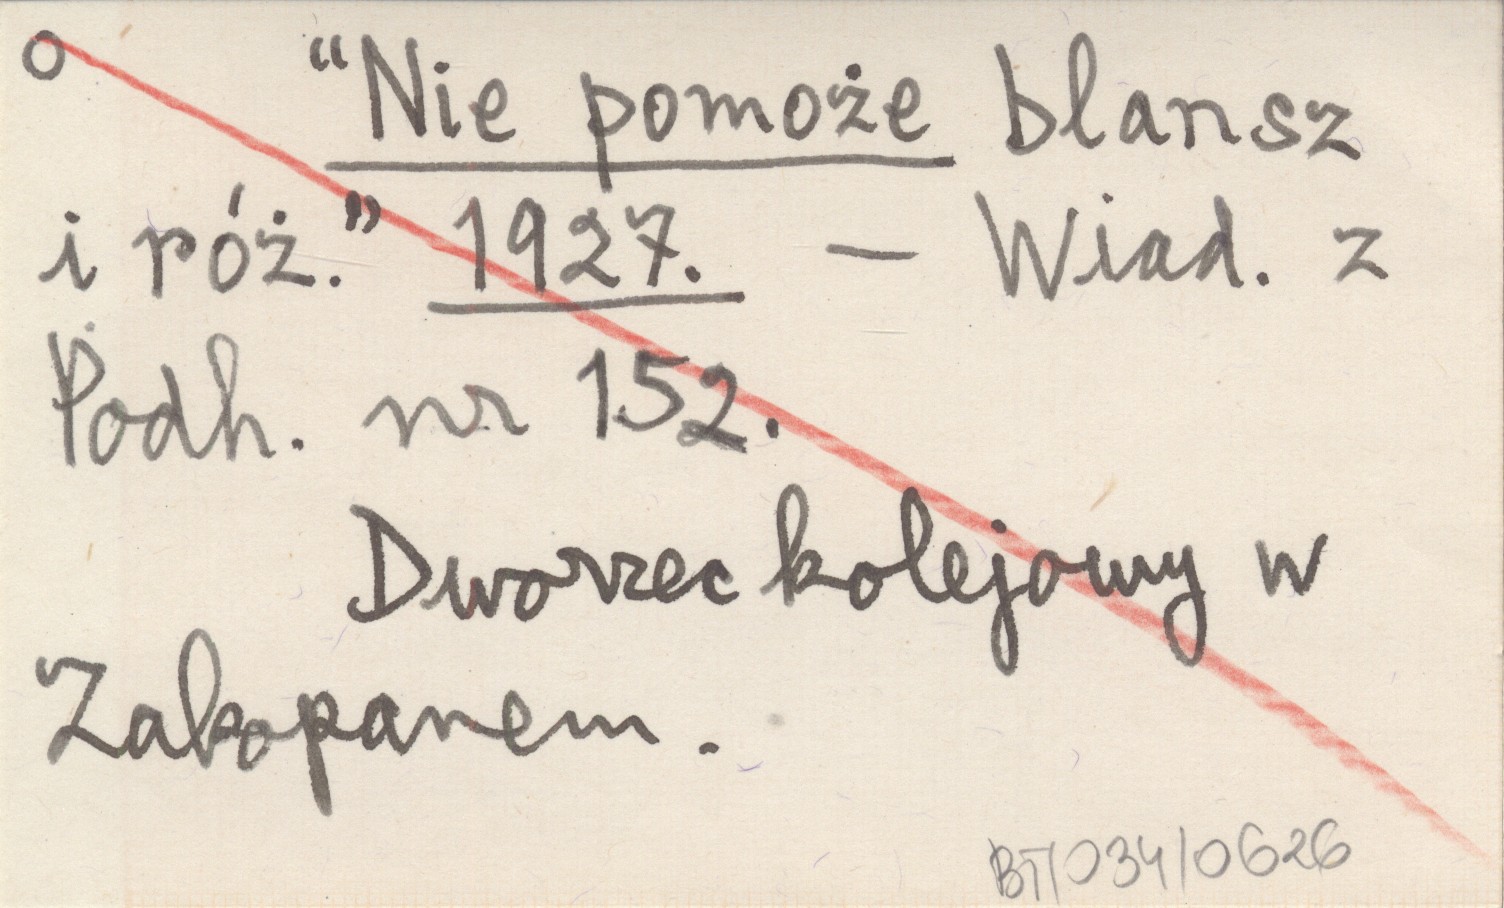 o "Nie pomoże blansz
i róż." 1927. — Wiad. z
Podh. nr 152.
Dworzec kolejowy w
Zakopanem.
BT/034/0626